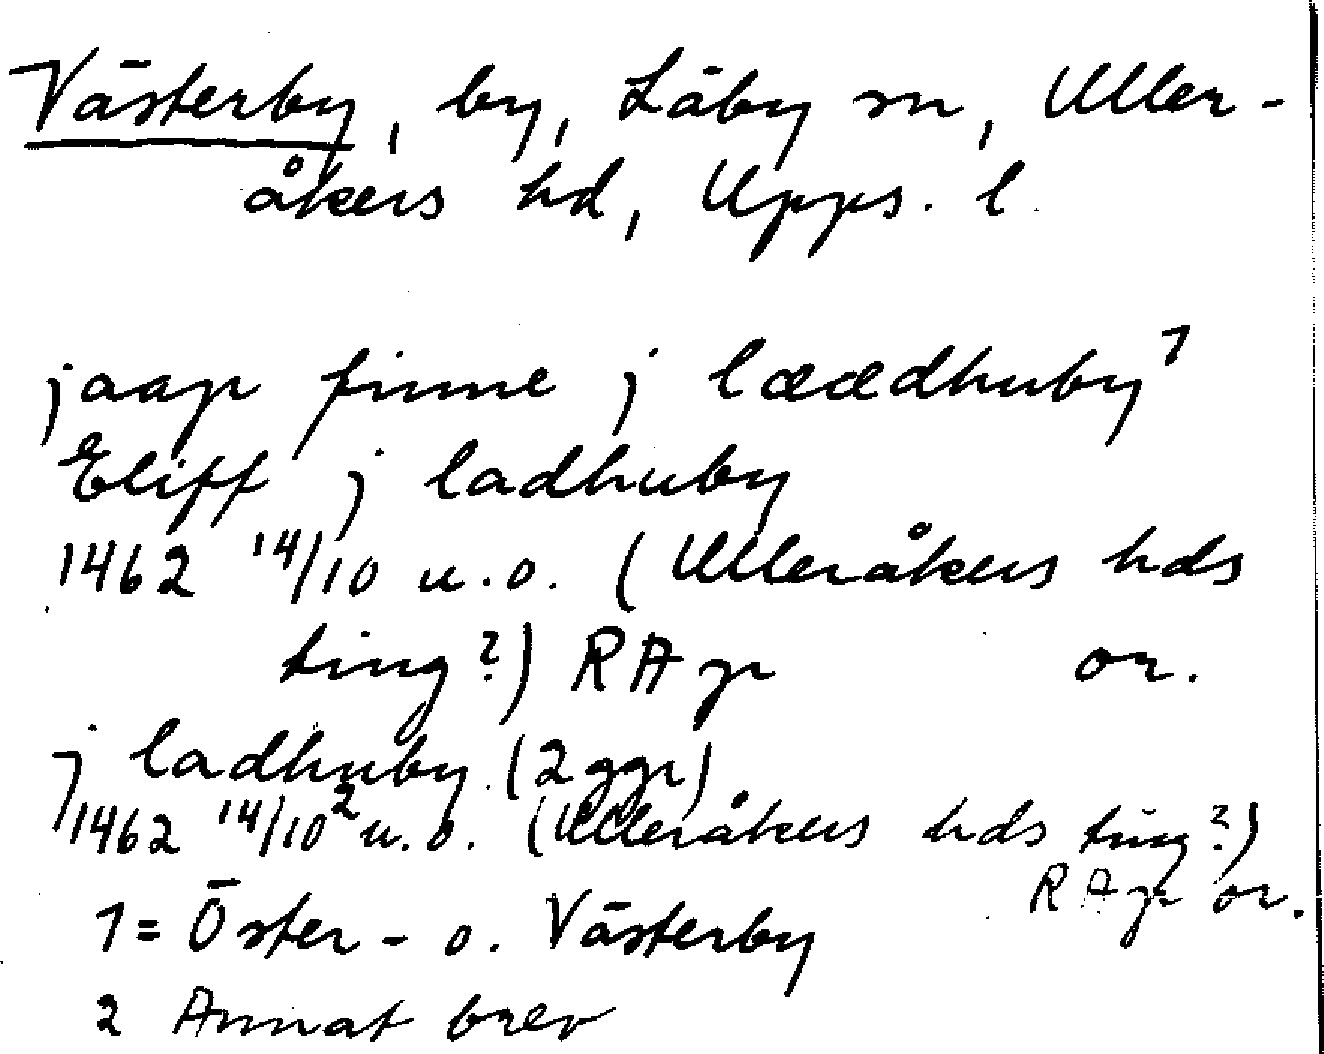 Västerby, by, Läby sn, Uller-
åkers hd, Upps. l.
jaap finne j læædhuby¹
Eliff j ladhuby
1462 14/10 u.o. (Ulleråkers hds
ting?) RAp or.
j ladhuby (2 ggr)
1462 14/10² u.o. (Ulleråkers hds ting?)
RAp or.
1 = Öster- o. Västerby
2 Annat brev